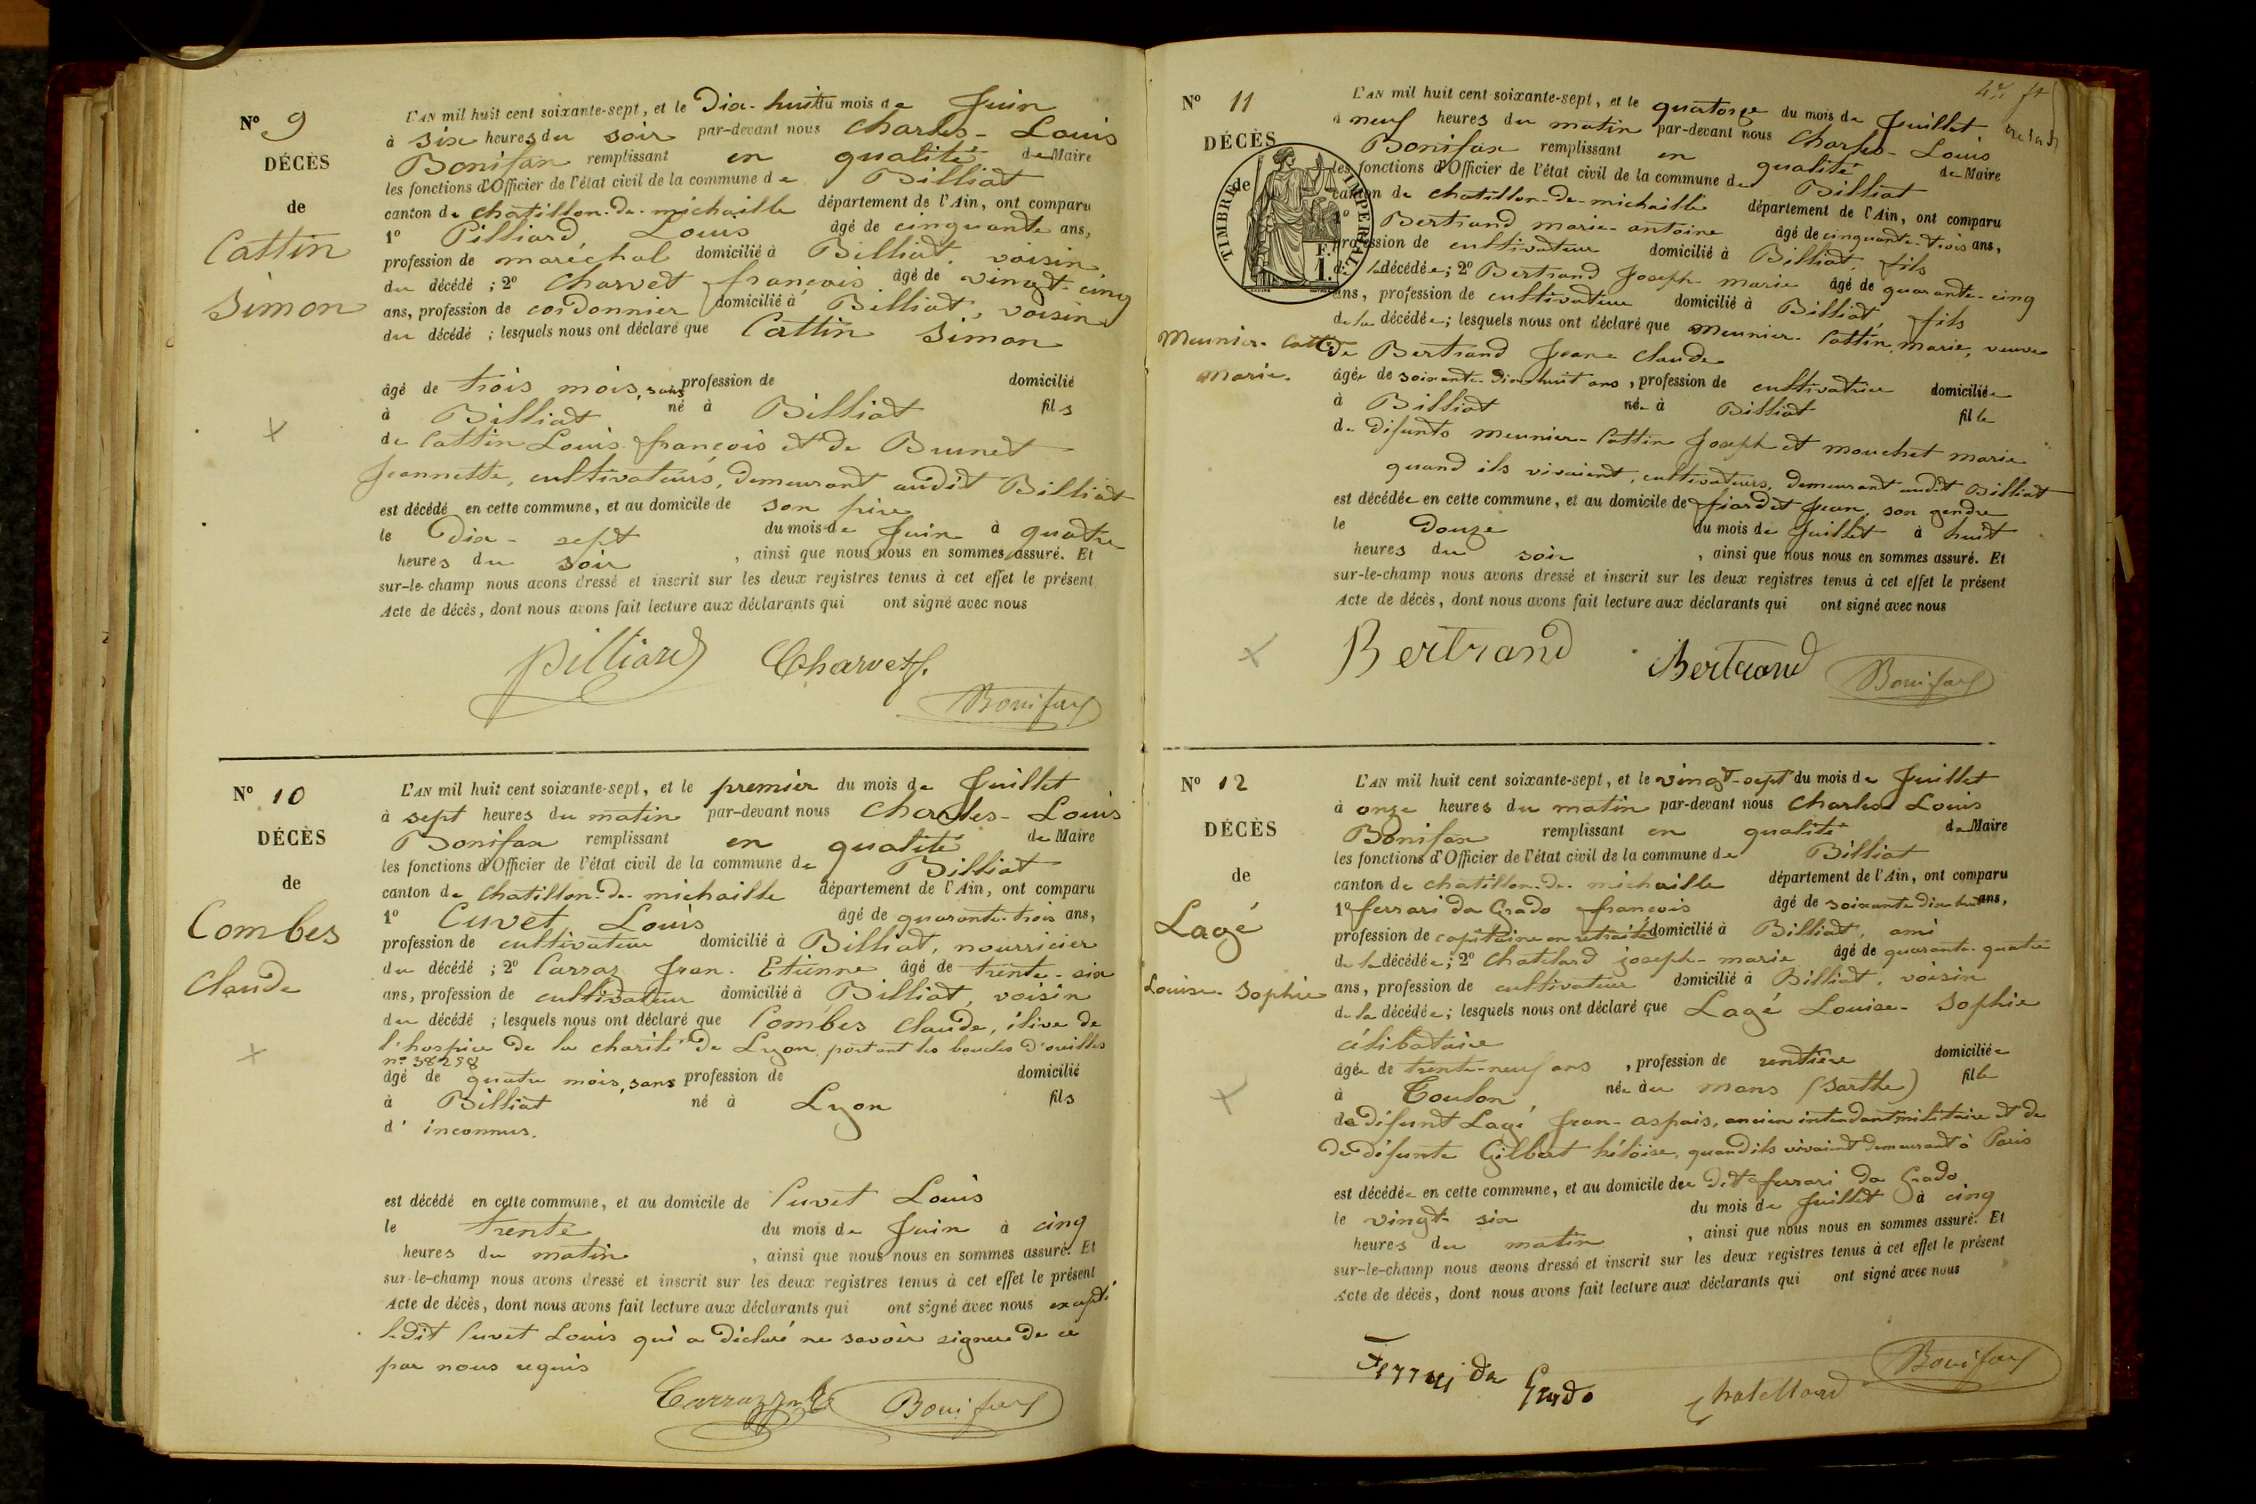 Nº 9
DÉCÈS
de
Cattin
Simon
L'AN mil huit cent soixante-sept, et le Dix-huit du mois de Juin
à six heures du soir par-devant nous Charles-Louis
Bonifax remplissant en qualité de Maire
les fonctions d'Officier de l'état civil de la commune de Billiat
canton de Chatillon-de-michaille département de l'Ain, ont comparu
1º Pilliard, Louis âgé de cinquante ans,
profession de maréchal domicilié à Billiat, voisin
du décédé ; 2º Charvet françois âgé de vingt-cinq
ans, profession de cordonnier domicilié à Billiat, voisin
du décédé ; lesquels nous ont déclaré que Cattin Simon
âgé de trois mois, sans profession de domicilié
à Billiat né à Billiat fils
de Cattin Louis françois et de Brunet
Jeannette, cultivateurs, demeurant audit Billiat
est décédé en cette commune, et au domicile de son père
le Dix-sept du mois de Juin à quatre
heures du soir , ainsi que nous nous en sommes assuré. Et
sur-le-champ nous avons dressé et inscrit sur les deux registres tenus à cet effet le présent
Acte de décès, dont nous avons fait lecture aux déclarants qui ont signé avec nous
Pilliard Charvet f.
Bonifax
Nº 10
DÉCÈS
de
Combes
Claude
L'AN mil huit cent soixante-sept, et le premier du mois de Juillet
à sept heures du matin par-devant nous Charles-Louis
Bonifax remplissant en qualité de Maire
les fonctions d'Officier de l'état civil de la commune de Billiat
canton de Chatillon-de-michaille département de l'Ain, ont comparu
1º Cuvet, Louis âgé de quarante-trois ans,
profession de cultivateur domicilié à Billiat, nourricier
du décédé ; 2º Carraz Jean-Etienne âgé de trente-six
ans, profession de cultivateur domicilié à Billiat, voisin
du décédé ; lesquels nous ont déclaré que Combes Claude, élève de
l'hospice de la charité de Lyon, portant les boucles d'oreilles
nº 38298
âgé de quatre mois, sans profession de domicilié
à Billiat né à Lyon fils
d'inconnus.
est décédé en cette commune, et au domicile de Cuvet Louis
le trente du mois de Juin à cinq
heures du matin , ainsi que nous nous en sommes assuré. Et
sur-le-champ nous avons dressé et inscrit sur les deux registres tenus à cet effet le présent
Acte de décès, dont nous avons fait lecture aux déclarants qui ont signé avec nous excepté
ledit Cuvet Louis qui a déclaré ne savoir signer de ce
par nous requis
Bonifax
Nº 11
DÉCÈS
de
TIMBRE IMPERIAL
F.
1.
Meunier-Cattin
marie.
L'AN mil huit cent soixante-sept, et le quatorze du mois de Juillet
à neuf heures du matin par-devant nous Charles-Louis
Bonifax remplissant en qualité de Maire
les fonctions d'Officier de l'état civil de la commune de Billiat
canton de Chatillon-de-michaille département de l'Ain, ont comparu
1º Bertrand marie-antoine âgé de cinquante-trois ans,
profession de cultivateur domicilié à Billiat, fils
de la décédée ; 2º Bertrand Joseph-marie âgé de quarante-cinq
ans, profession de cultivateur domicilié à Billiat, fils
de la décédée ; lesquels nous ont déclaré que meunier-Cattin, marie, veuve
De Bertrand Jean-Claude
âgée de soixante-dix-huit ans, profession de cultivatrice domiciliée
à Billiat née à Billiat fille
de défunts meunier-Cattin Joseph et mouchet marie
quand ils vivaient, cultivateurs, demeurant audit Billiat
est décédée en cette commune, et au domicile de Jean, son gendre
le douze du mois de Juillet à huit
heures du soir , ainsi que nous nous en sommes assuré. Et
sur-le-champ nous avons dressé et inscrit sur les deux registres tenus à cet effet le présent
Acte de décès, dont nous avons fait lecture aux déclarants qui ont signé avec nous
Bertrand Bertrand Bonifax
Nº 12
DÉCÈS
de
Lagé
Louise-Sophie
L'AN mil huit cent soixante-sept, et le vingt-sept du mois de Juillet
à onze heures du matin par-devant nous Charles Louis
Bonifax remplissant en qualité de Maire
les fonctions d'Officier de l'état civil de la commune de Billiat
canton de Chatillon-de-michaille département de l'Ain, ont comparu
1º ferrari da Grado françois âgé de soixante dix huit ans,
profession de capitaine en retraite domicilié à Billiat, ami
de la décédée ; 2º Chatelard joseph-marie âgé de quarante-quatre
ans, profession de cultivateur domicilié à Billiat, voisin
de la décédée ; lesquels nous ont déclaré que Lagé Louise-Sophie
célibataire
âgée de trente-neuf ans , profession de rentière domiciliée
à Toulon, née au mans (Sarthe) fille
de défunt Lagé Jean-aspais, ancien intendant militaire et de
de défunte Gilbert héloïse, quand ils vivaient demeurant à Paris
est décédée en cette commune, et au domicile du dit ferrari da Grado
le vingt-six du mois de Juillet à cinq
heures du matin , ainsi que nous nous en sommes assuré. Et
sur-le-champ nous avons dressé et inscrit sur les deux registres tenus à cet effet le présent
Acte de décès, dont nous avons fait lecture aux déclarants qui ont signé avec nous
Ferrari da Grado Chatellard Bonifax